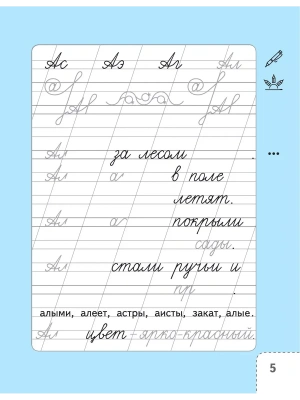 Ас Аэ Аг Ал
Ал Ал
Ал за лесом .
Ал а в поле
летят.
Ал а покрыли
сады.
Ал стали ручьи и
пр .
алыми, алеет, астры, аисты, закат, алые.
Ал цвет – ярко-красный.
5